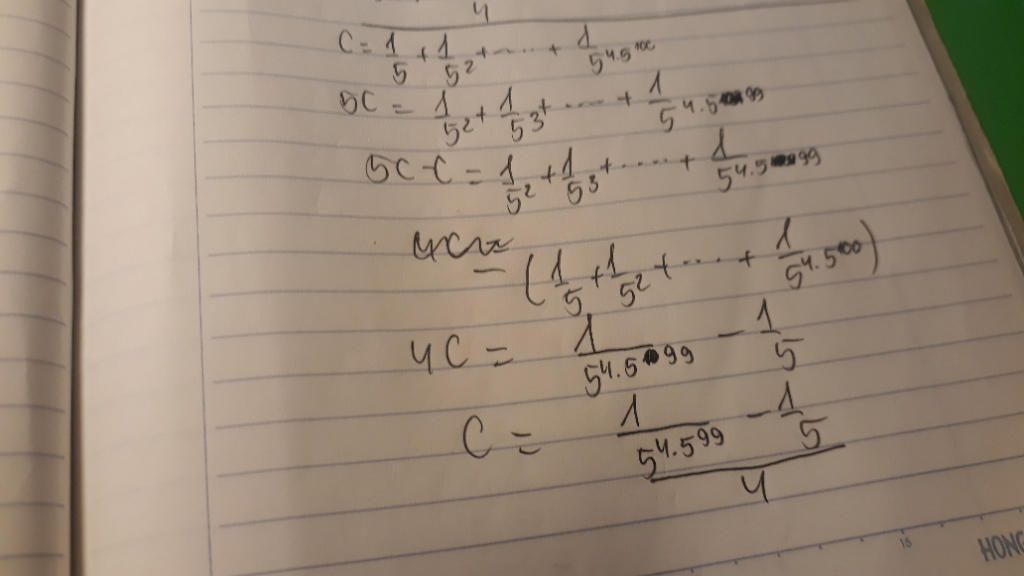 4
C = 1/5 + 1/5² + ..... + 1/5^4.5^100
5C = 1/5² + 1/5³ + ..... + 1/5^4.5^99
5C - C = 1/5² + 1/5³ + ..... + 1/5^4.5^99
4C =
- (1/5 + 1/5² + .... + 1/5^4.5^100)
4C = 1/5^4.5^99 - 1/5
C = (1/5^4.5^99 - 1/5)/4
15
HONG